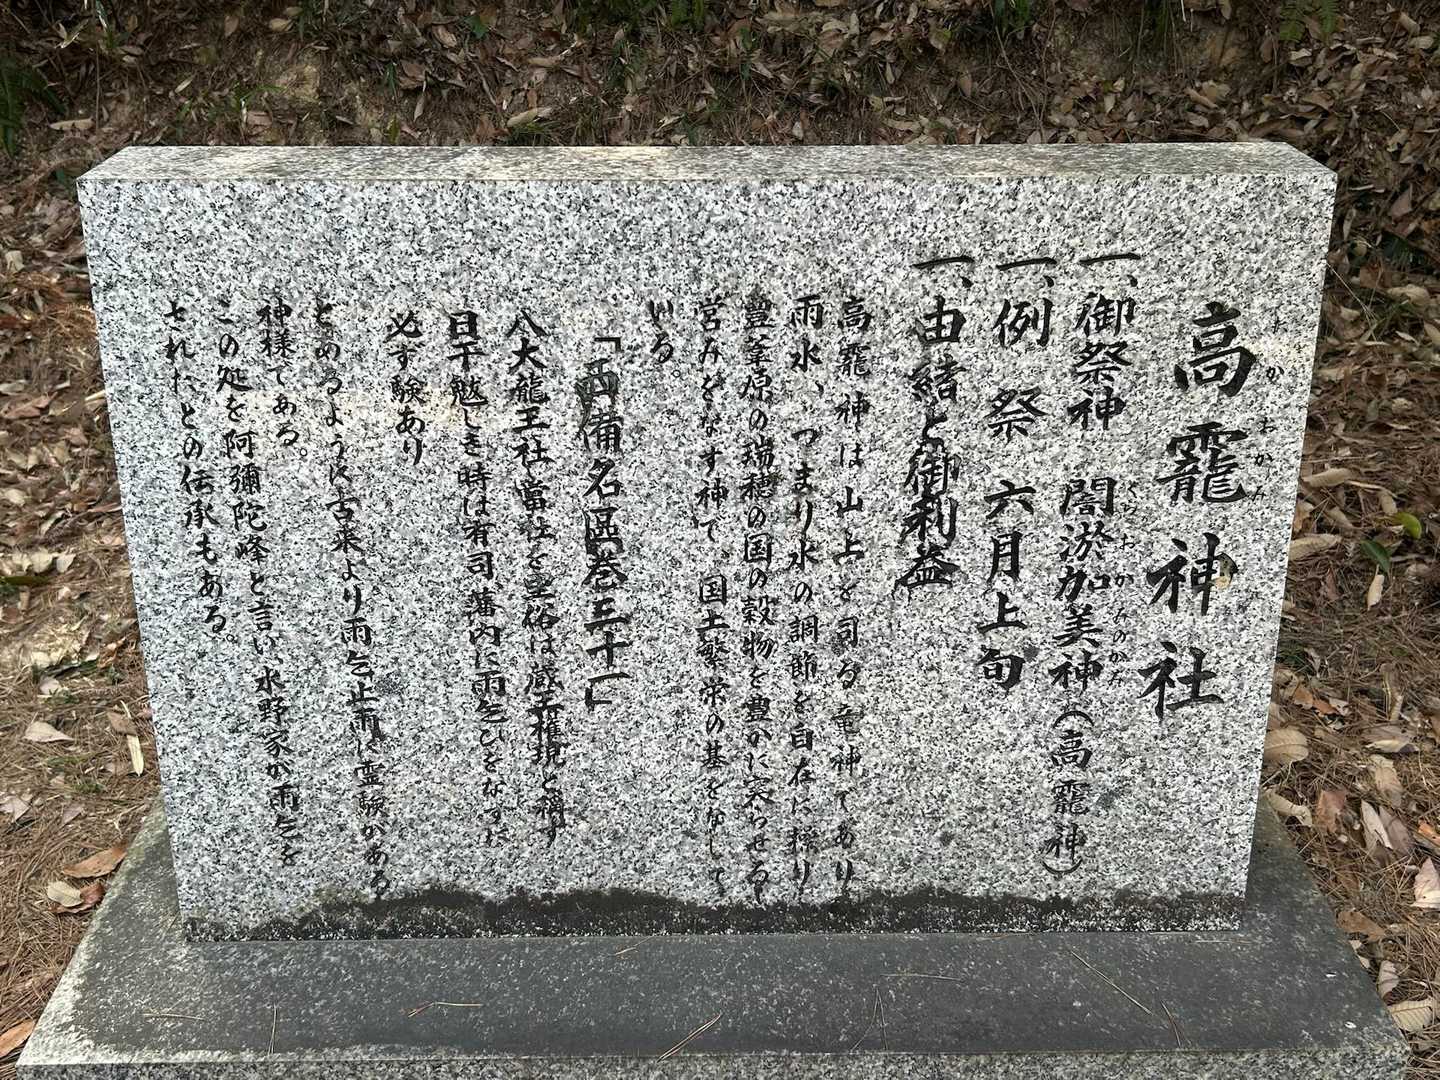 高龗神社
たかおかみ
一、御祭神 闇淤加美神(高龗神)
くらおかみのかみ
一、例 祭 六月上旬
一、由緒と御利益
高龗神は山上を司る竜神であり
雨水、つまり水の調節を自在に操り
豊葦原の瑞穂の国の穀物を豊かに実らせる
営みをなす神で、国土繁栄の基をなして
いる。
「西備名區巻三十一」
八大龍王社當社を里俗は蔵王権現と稱す
日干魃しき時は有司藩内に雨乞ひをなすに
必ず験あり
とあるように古来より雨乞止雨に霊験がある
神様である。
この処を阿彌陀峰と言い、水野家が雨乞を
されたとの伝承もある。